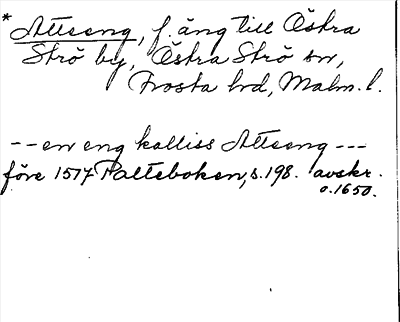 * Atteeng, f. äng till Östra
Strö by, Östra Strö sn,
Frosta hd, Malm. l.
-- en eng kalliss Atteeng ---
före 1517 Palteboken, s. 198. avskr.
o. 1650.